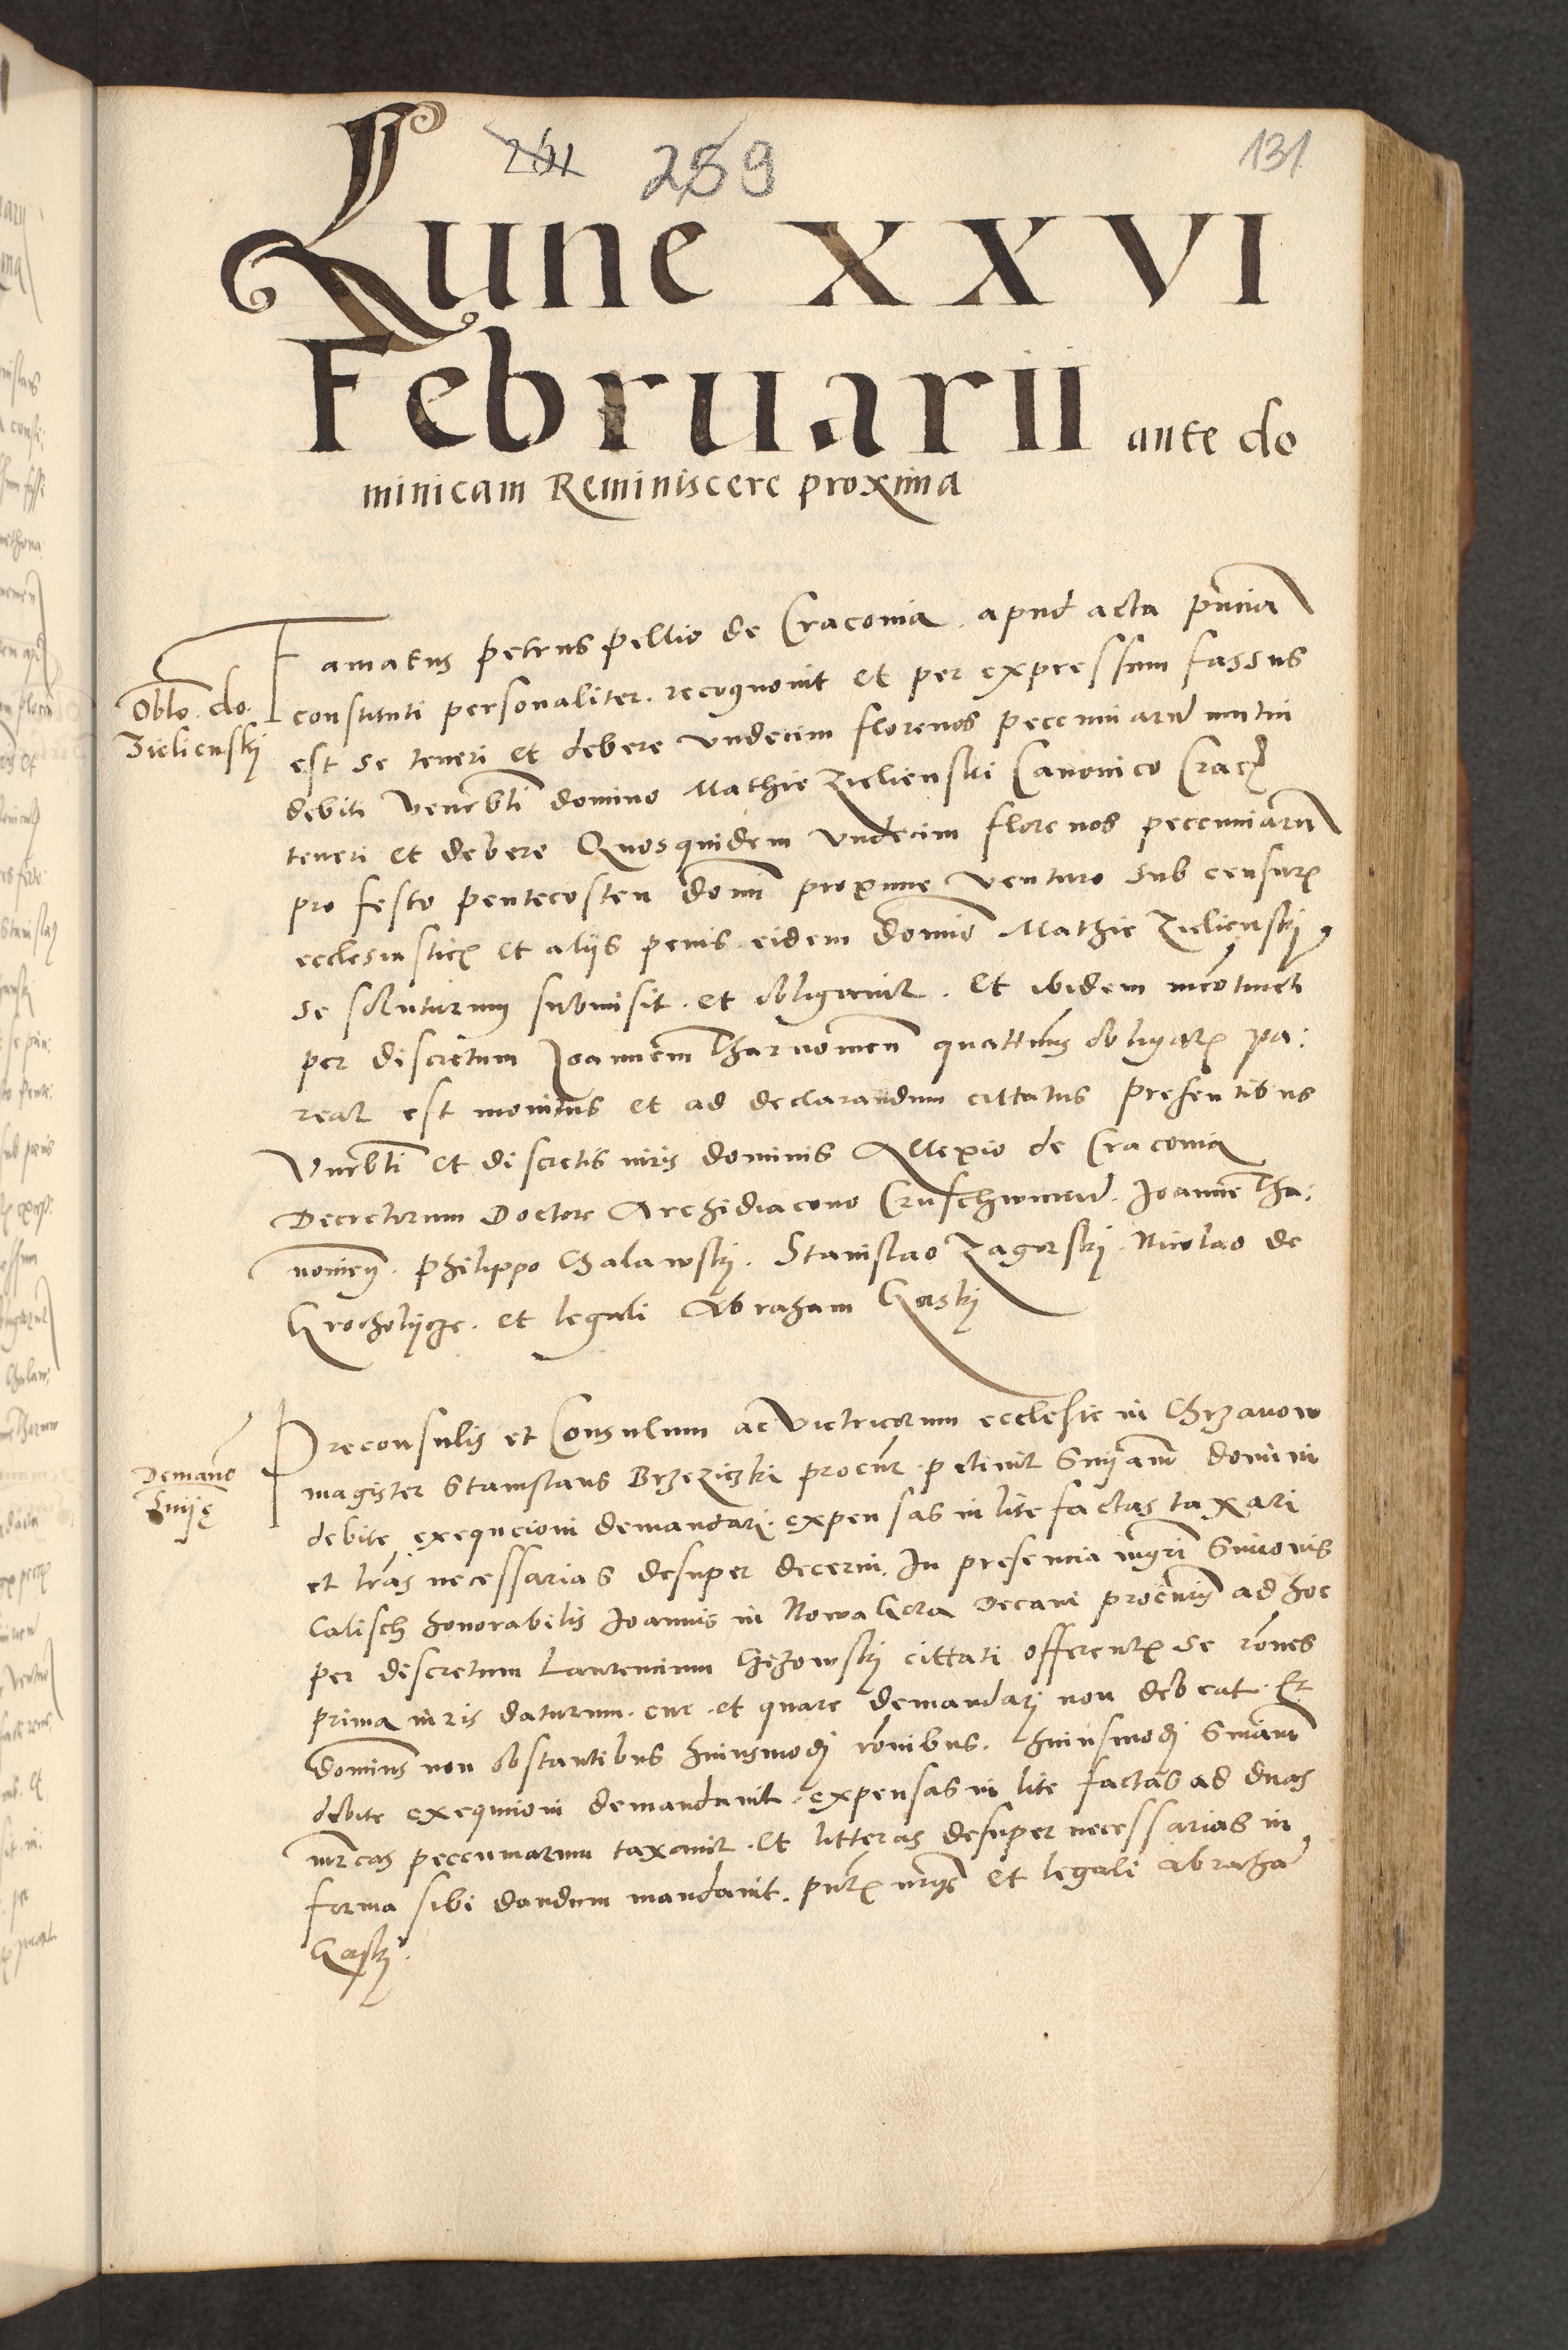 261 259 131
Lune XXVI
Februarii ante do
minicam Reminiscere proxima
Oblo. do.
Zielienskj
Famatus petrus pellio de Cracovia. apud acta pncia
constituti personaliter. recognovit et per expressum fassus
est se teneri et debere vndecim florenos pecuniaru mutui
debiti Venerbli domino Mathie Zielienski Canonico Crac
teneri et debere Quosquidem vndecim florenos pecuniaru
pro festo pentecosten domi proxime venturo sub censur
ecclesiastic et alijs penis eidem domino Mathie Zielienskj
se soluturum submisit. et obligavit. Et ibidem incotineti
per discretum Joannem Tharnomen quattinus obligac pa:
reat est monitus et ad declarandum cittatus presentibus
Vnerbli et discretis viris dominis Allexio de Cracovia
Decretorum Doctore Archidiacono Cruschwicien. Joanne Tha:
nomeny. philippo Chalawskj. Stanislao Zagorskj. Nicolao de
Krocholijcze. et legali Abraham Gaskj
Demano
Snije
Preconsulis et Consulum ac Victricorum ecclesie in Chrzanow
magister Stanislaus Brzeziczki procur. petivit Snijam domini
debite exequcioni demandari. expensas in lite factas taxari
et lras necessarias desuper decerni. In presencia mgri Simonis
Calisch honorabilis Joannis in Nowa Gora decani procuris ad hoc
per discretum Laurencium Gizowskj cittati offerent se rones
prima iuris daturum. cur. et quare demandarj non debeat. Et
dominus non obstantibus huiusmodj ronibus. huiusmodj Sniam
debite exequcioni demandavit. expensas in lite factas ad duas
mrcas peccuniarum taxavit. Et litteras desuper necessarias in
forma sibi dandum mandavit. pntx et legali Abraha
Gaskj.